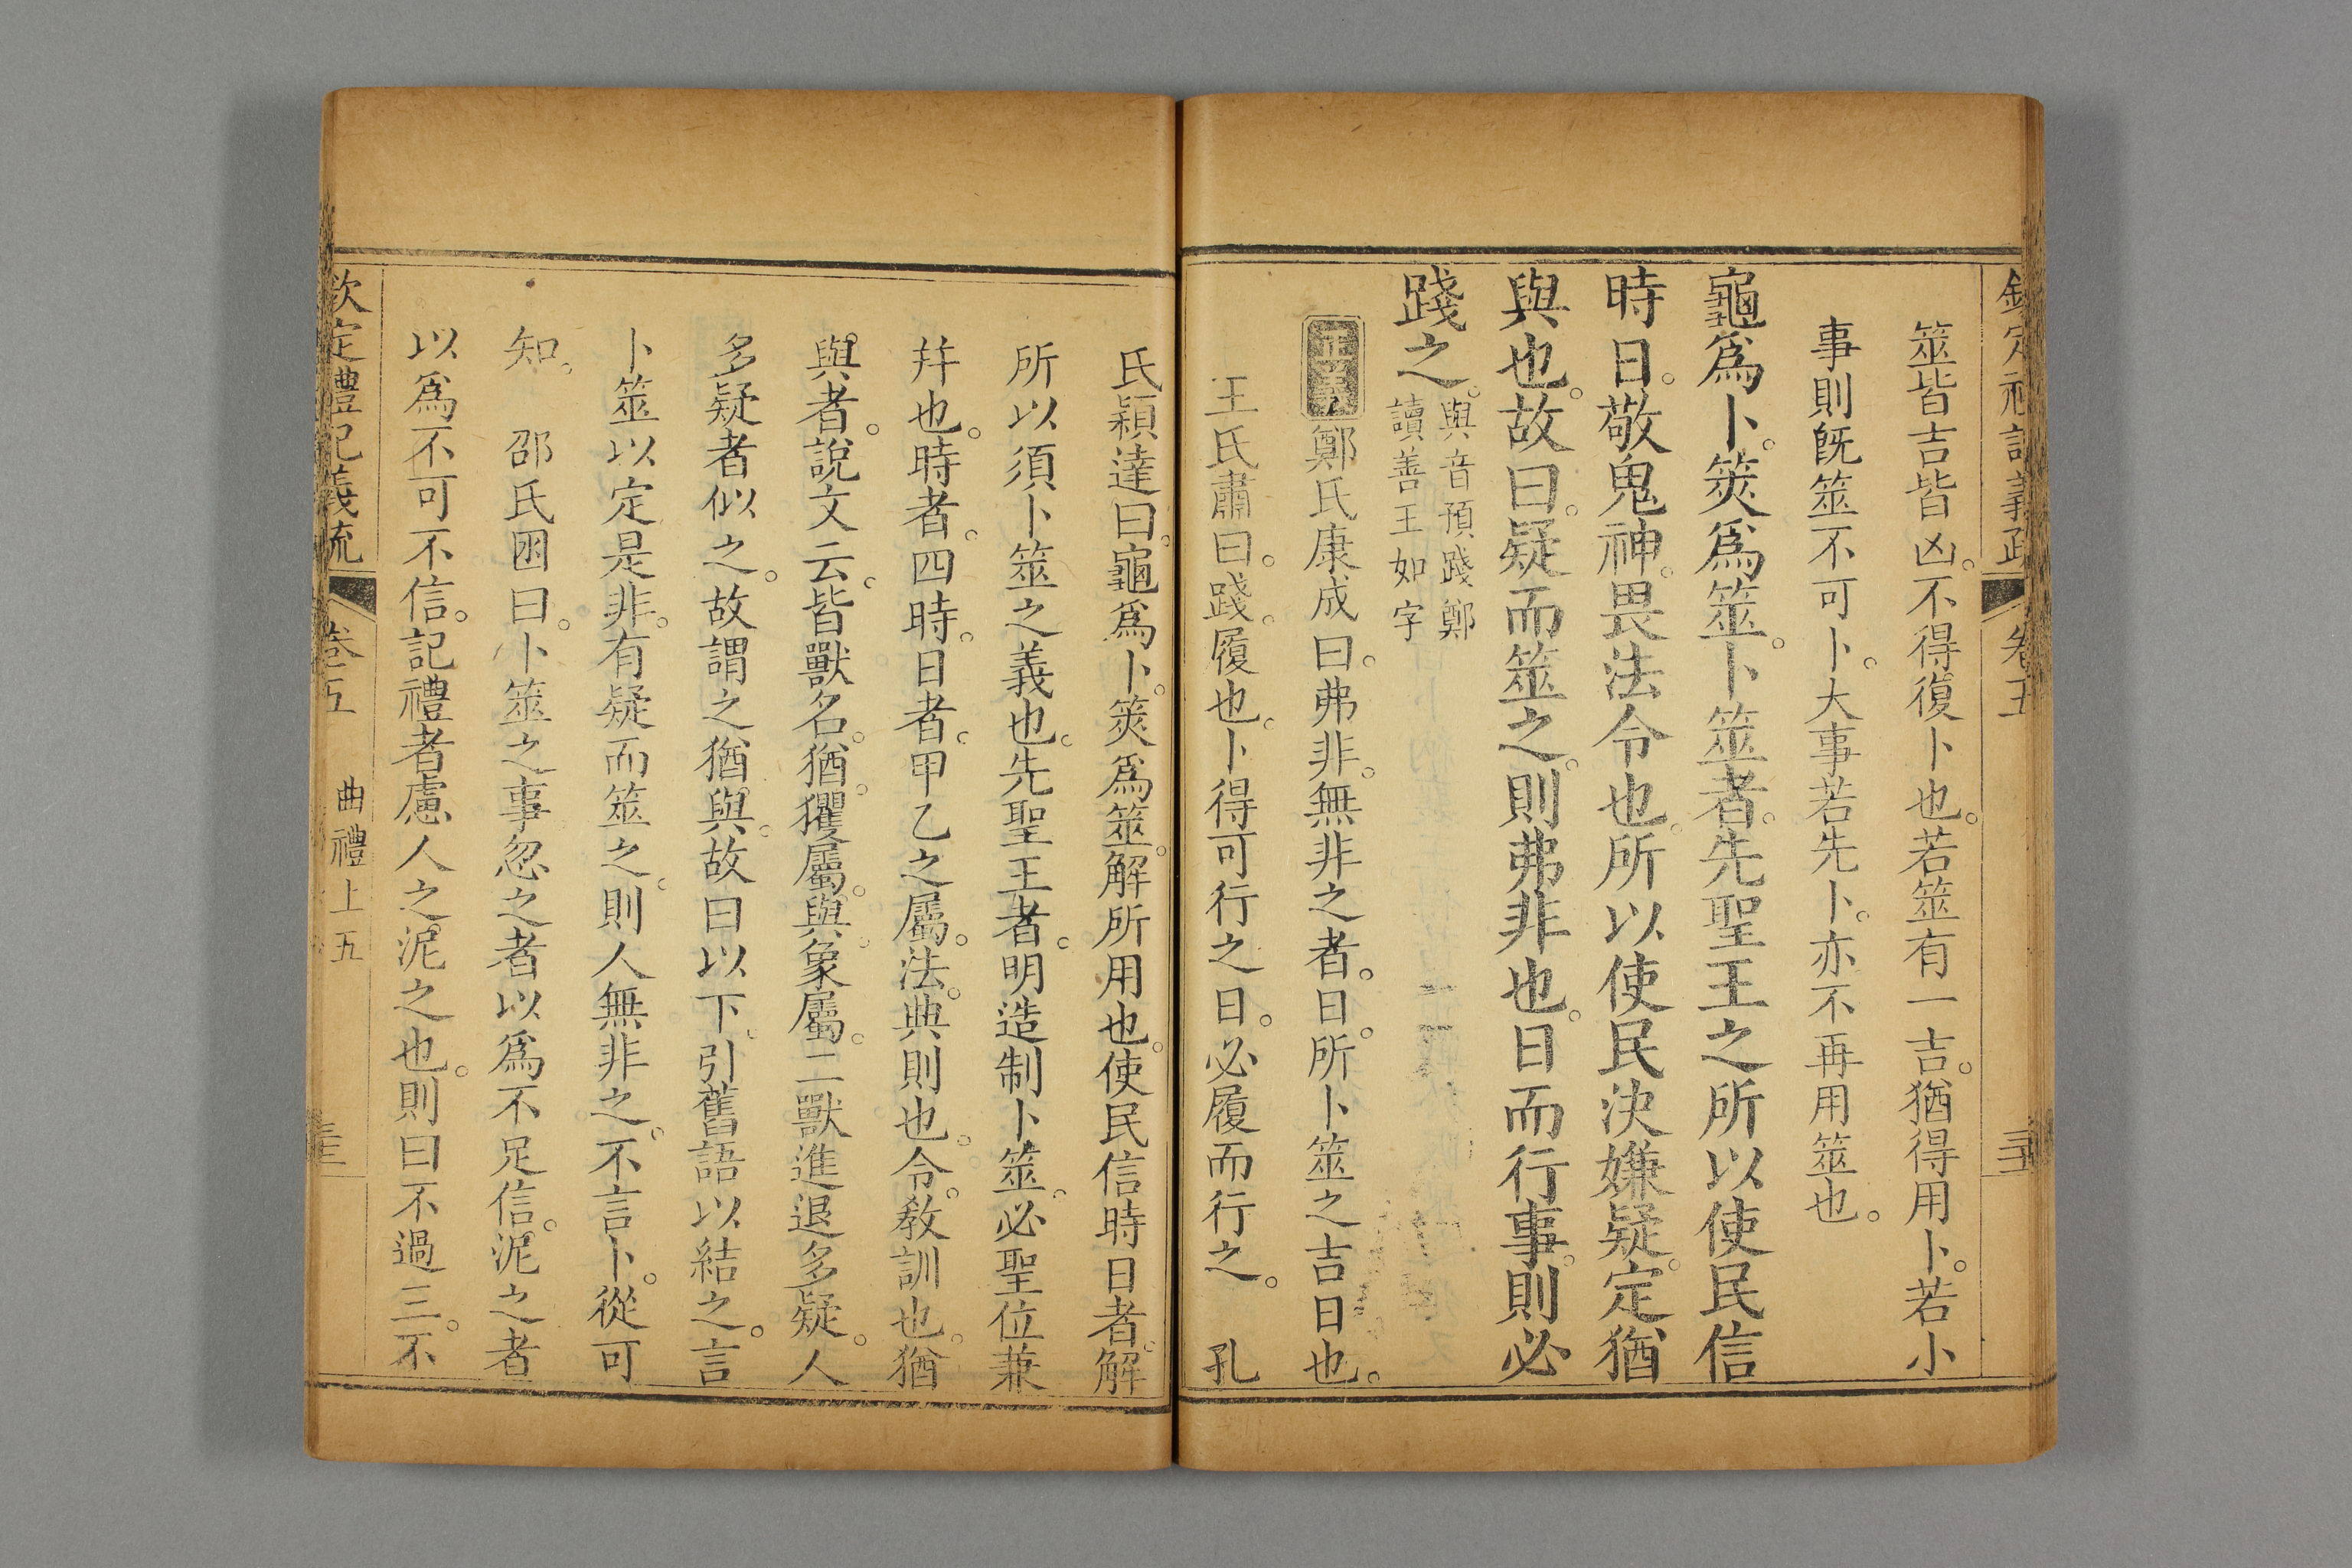 欽定禮記義疏 卷五
筮皆吉皆凶。不得復卜也。若筮有一吉。猶得用卜。若小
事則旣筮不可卜。大事若先卜。亦不再用筮也。
龜爲卜。筴爲筮。卜筮者。先聖王之所以使民信
時日。敬鬼神。畏法令也。所以使民決嫌疑。定猶
與也。故曰。疑而筮之。則弗非也。日而行事。則必
踐之。
與音預踐鄭
讀善王如字
正義 鄭氏康成曰。弗非。無非之者。日。所卜筮之吉日也。
王氏肅曰。踐。履也。卜得可行之日。必履而行之。 孔
氏穎達曰。龜爲卜。筴爲筮。解所用也。使民信時日者。解
所以須卜筮之義也。先聖王者。明造制卜筮。必聖位兼
幷也。時者。四時。日者。甲乙之屬。法。典則也。令。敎訓也。猶
與者。說文云。皆獸名。猶。玃屬。與。象屬。二獸進退多疑。人
多疑者似之。故謂之猶與。故曰以下。引舊語以結之。言
卜筮以定是非。有疑而筮之。則人無非之。不言卜。從可
知。 邵氏困曰。卜筮之事忽之者以爲不足信。泥之者
以爲不可不信。記禮者慮人之泥之也。則曰不過三。不
欽定禮記義疏 卷五 曲禮上五